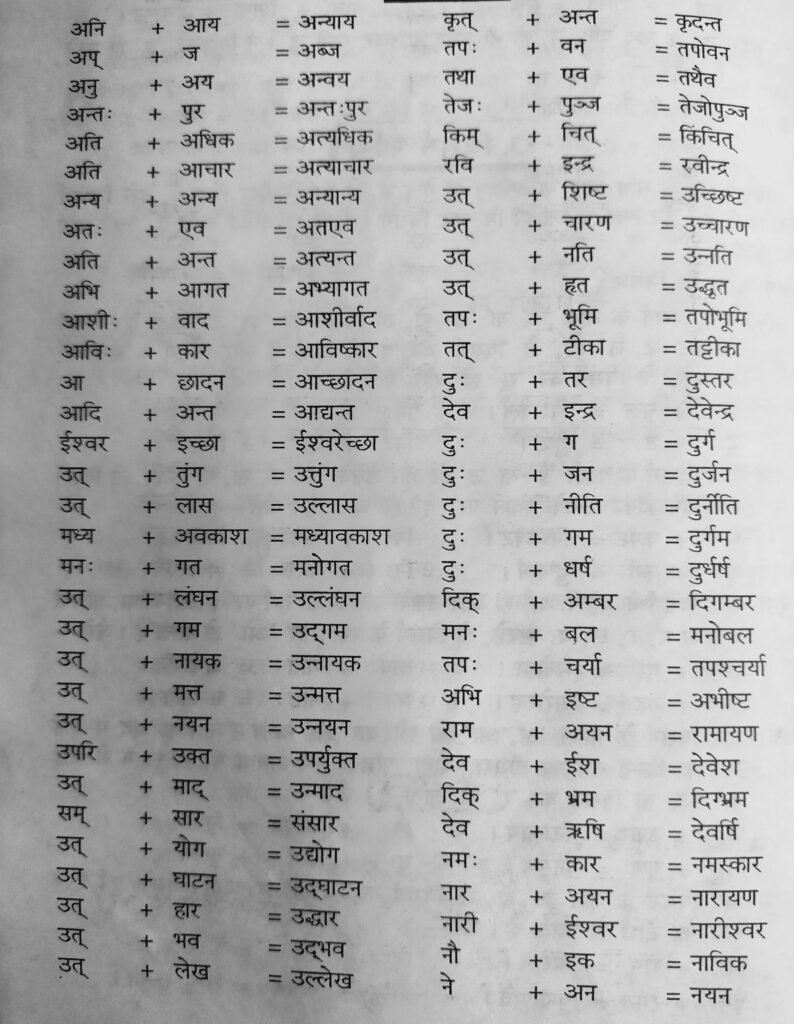 अनि + आय = अन्याय
अप् + ज = अब्ज
अनु + अय = अन्वय
अन्तः + पुर = अन्तःपुर
अति + अधिक = अत्यधिक
अति + आचार = अत्याचार
अन्य + अन्य = अन्यान्य
अतः + एव = अतएव
अति + अन्त = अत्यन्त
अभि + आगत = अभ्यागत
आशीः + वाद = आशीर्वाद
आविः + कार = आविष्कार
आ + छादन = आच्छादन
आदि + अन्त = आद्यन्त
ईश्वर + इच्छा = ईश्वरेच्छा
उत् + तुंग = उत्तुंग
उत् + लास = उल्लास
मध्य + अवकाश = मध्यावकाश
मनः + गत = मनोगत
उत् + लंघन = उल्लंघन
उत् + गम = उद्‌गम
उत् + नायक = उन्नायक
उत् + मत्त = उन्मत्त
उत् + नयन = उन्नयन
उपरि + उक्त = उपर्युक्त
उत् + माद् = उन्माद
सम् + सार = संसार
उत् + योग = उद्योग
उत् + घाटन = उद्‌घाटन
उत् + हार = उद्धार
उत् + भव = उद्‌भव
उत् + लेख = उल्लेख
कृत् + अन्त = कृदन्त
तपः + वन = तपोवन
तथा + एव = तथैव
तेजः + पुञ्ज = तेजोपुञ्ज
किम् + चित् = किंचित्
रवि + इन्द्र = रवीन्द्र
उत् + शिष्ट = उच्छिष्ट
उत् + चारण = उच्चारण
उत् + नति = उन्नति
उत् + हृत = उद्धृत
तपः + भूमि = तपोभूमि
तत् + टीका = तट्टीका
दुः + तर = दुस्तर
देव + इन्द्र = देवेन्द्र
दुः + ग = दुर्ग
दुः + जन = दुर्जन
दुः + नीति = दुर्नीति
दुः + गम = दुर्गम
दुः + धर्ष = दुर्धर्ष
दिक् + अम्बर = दिगम्बर
मनः + बल = मनोबल
तपः + चर्या = तपश्चर्या
अभि + इष्ट = अभीष्ट
राम + अयन = रामायण
देव + ईश = देवेश
दिक् + भ्रम = दिग्भ्रम
देव + ऋषि = देवर्षि
नमः + कार = नमस्कार
नार + अयन = नारायण
नारी + ईश्वर = नारीश्वर
नौ + इक = नाविक
ने + अन = नयन